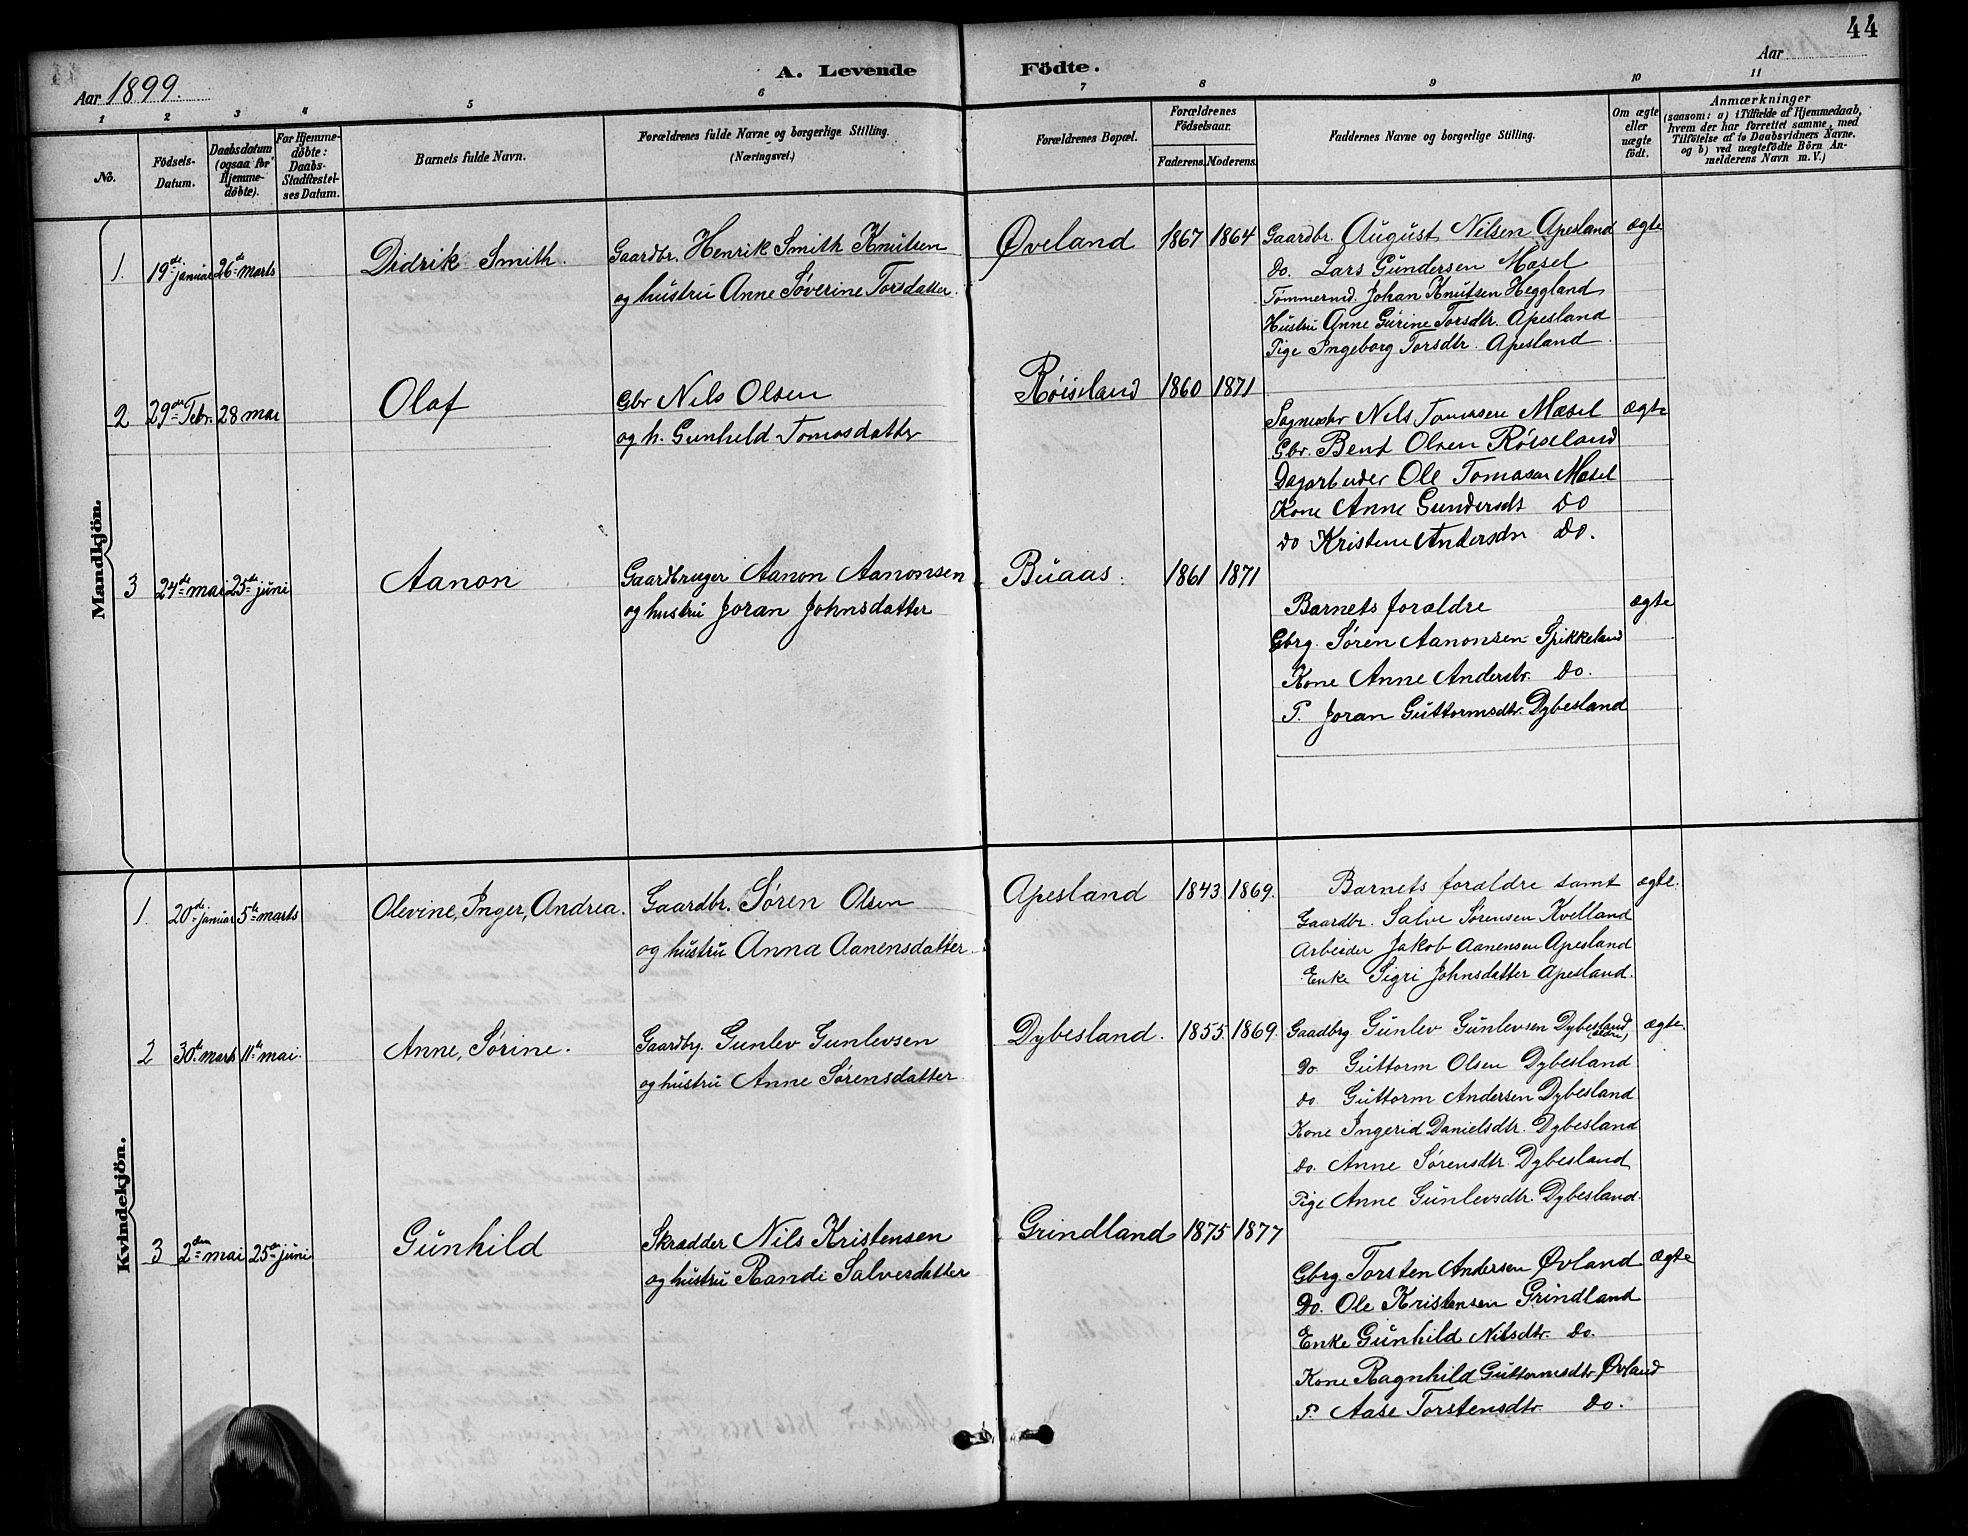 44
Aar 1899.
A. Levende Födte.
Aar
1 2 3 4 5 6 7 8 9 10 11
No.
Födsels-Datum.
Daabsdatum (ogsaa for Hjemme-döbte).
For Hjemme-döbte: Daabs-Stadfæstel-ses Datum.
Barnets fulde Navn.
Forældrenes fulde Navne og borgerlige Stilling. (Næringsvei.)
Forældrenes Bopæl.
Forældrenes Födselsaar.
Faderens. Moderens.
Faddernes Navne og borgerlige Stilling.
Om ægte eller uægte födt.
Anmærkninger
(saasom: a) i Tilfælde af Hjemmedaab, hvem der har forrettet samme, med Tilföielse af to Daabsvidners Navne. og b) ved uægtefödte Börn An-melderens Navn m. V.)
Mandkjön.
1. 19de januar 26de marts Didrik Smith. Gaardbr. Henrik Smith Knutsen Øveland 1867 1864 Gaardbr. August Nilsen Apesland ægte
og hustru Anne Søverine Torsdatter. Do. Lars Gundersen Mæsel
Tømmermd. Johan Knutsen Heggland
Hustru Anne Gurine Torsdtr. Apesland
Pige Ingeborg Torsdtr. Apesland.
2 29de Febr. 28 mai Olaf Gbr Nils Olsen Røiseland 1860 1871
og h. Gunhild Tomasdatter
Nils Tomasen Mæsel ægte
Gbr. Bent Olsen Røiseland
Dagarbeider Ole Tomasen Mæsel
Kone Anne Gundersdt Do
Do Kristene Andersdtr Do.
3 24de mai 25de juni Aanon Gaardbruger Aanon Aanonsen Buaas. 1861 1871
og hustru Joran Johnsdatter
Barnets forældre ægte
Gbrg. Søren Aanonsen Spikkeland
Kone Anne Anderstr. Do.
P. Joran Guttormsdtr. Dybesland
Kvindekjön.
1. 20de januar 5te marts Olevine, Inger, Andrea. Gaardbr. Søren Olsen Apesland 1843 1869. Barnets forældre samt ægte.
og hustru Anna Aanensdatter Gaardbr. Salve Sørensen Kvelland
Arbeider Jakob Aanensen Apesland
Enke Sigri Johnsdatter Apesland.
2 30te marts 11te mai. Anne, Sørine. Gaardbrg. Gunlev Gunlevsen Dybesland. 1855. 1869. Gaadbrg Gunlev Gunlevsen Dybesland ægte.
og hustru Anne Sørensdatter Do. Guttorm Olsen Dybesland
do Guttorm Andersen Dybesland
Kone Ingerid Danielsdtr. Dybesland
Do. Anne Sørensdtr. Dybesland
Pige Anne Gunlevsdtr. Dybesland.
3 2den mai 25de juni Gunhild Skrædder Nils Kristensen Grindland 1875 1877
og hustru Randi Salvesdatter
Gbrg. Torsten Andersen Øvland ægte
Do. Ole Kristensen Grindland
Enke Gunhild Nilsdtr. Do.
Kone Ragnhild Guttormsdtr. Øvland
P. Aase Torstensdtr. Do.